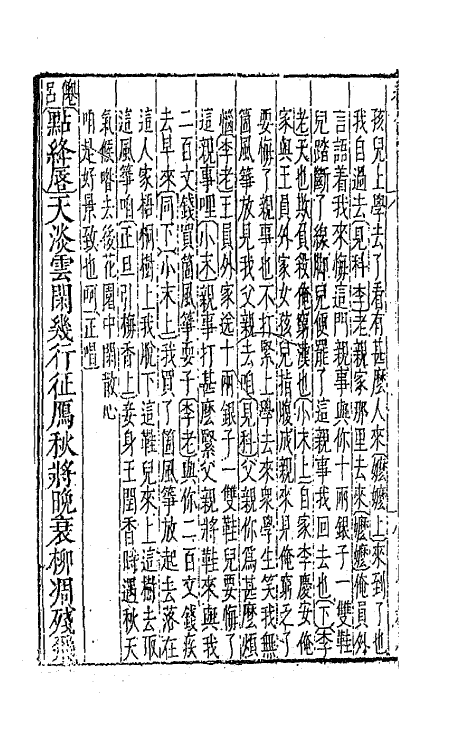 孩兒上學去了看有甚麼人來嬷嬷上來到了也
我自過去見科李老親家那里去來嬷嬷俺員外
言語着我來悔這門親事與你十兩銀子一雙鞋
兒踏斷了線脚兒便罷了這親事我回去也下李
老天也欺負殺俺窮漢也小末上自家李慶安俺
家與王員外家女孩兒指腹成親來見俺窮乏了
要悔了親事也不打緊上學去來衆學生笑我無
箇風箏放兒我父親去咱見科父親你爲甚麼煩
惱李老王員外家送十兩銀子一雙鞋兒要悔了
這親事哩小末親事打甚麼緊父親將鞋來與我
二百文錢買箇風箏耍子李老與你二百文錢疾
去早來同下小末上我買了箇風箏放起去落在
這人家梧桐樹上我脫下這鞋兒來上這樹去取
這風箏咱正旦引梅香上妾身王閏香時遇秋天
氣候喒去後花園中閒散心
咱是好景致也呵正唱
仙呂點絳唇天淡雲閑幾行征鴈秋將晚衰柳凋殘飛